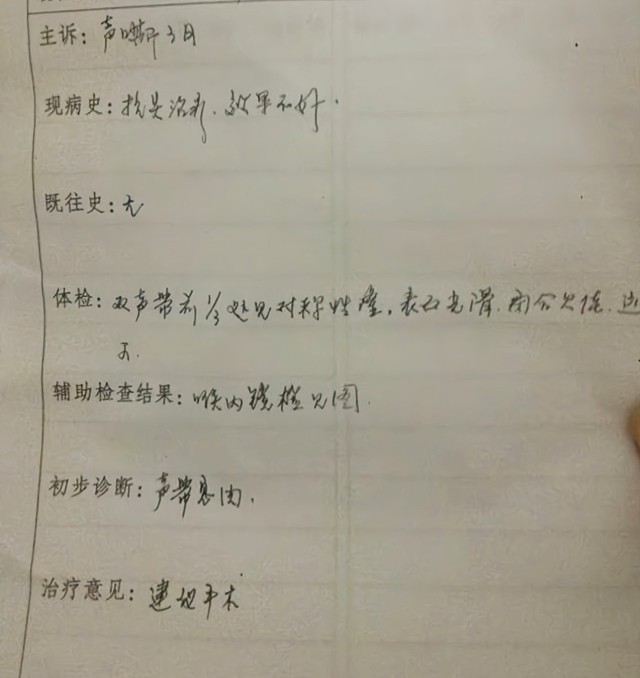 主诉：声嘶3月
现病史：抗炎治疗，效果不好．
既往史：无
体检：双声带前1/3处见对称性隆，表面光滑，闭合欠佳，运
可．
辅助检查结果：喉内镜检见图．
初步诊断：声带息肉．
治疗意见：建议手术